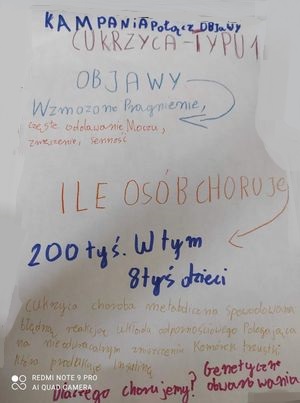 KAMPANIA Połącz Objawy
CUKRZYCA-TYPU 1
OBJAWY
Wzmożone Pragnienie,
częste oddawanie Moczu,
zmęczenie, senność
ILE OSÓB CHORUJE
200 tyś. W tym
8 tyś dzieci
Cukrzyca choroba metaboliczna spowodowana
błędną reakcją układu odpornościowego Polegającą
na nieodwracalnym zniszczeniu Komórek trzustki
które produkują Insulinę
Dlaczego chorujemy? Genetyczne
obwarowania
REDMI NOTE 9 PRO
AI QUAD CAMERA